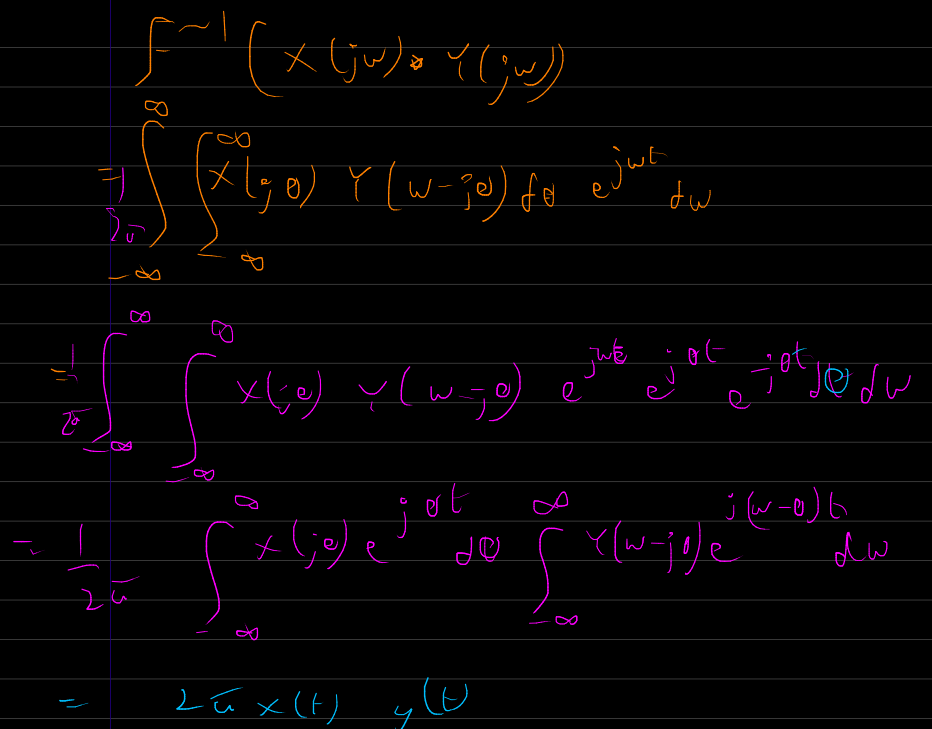 F^{-1} ( X(jw) * Y(jw) )
= 1/2π ∫_{-∞}^{∞} ∫_{-∞}^{∞} X(jθ) Y(w-jθ) dθ e^{jwt} dw
= 1/2π ∫_{-∞}^{∞} ∫_{-∞}^{∞} X(jθ) Y(w-jθ) e^{jwt} e^{jθt} e^{-jθt} dθ dw
= 1/2π ∫_{-∞}^{∞} X(jθ) e^{jθt} dθ ∫_{-∞}^{∞} Y(w-jθ) e^{j(w-θ)t} dw
= 2π x(t) y(t)